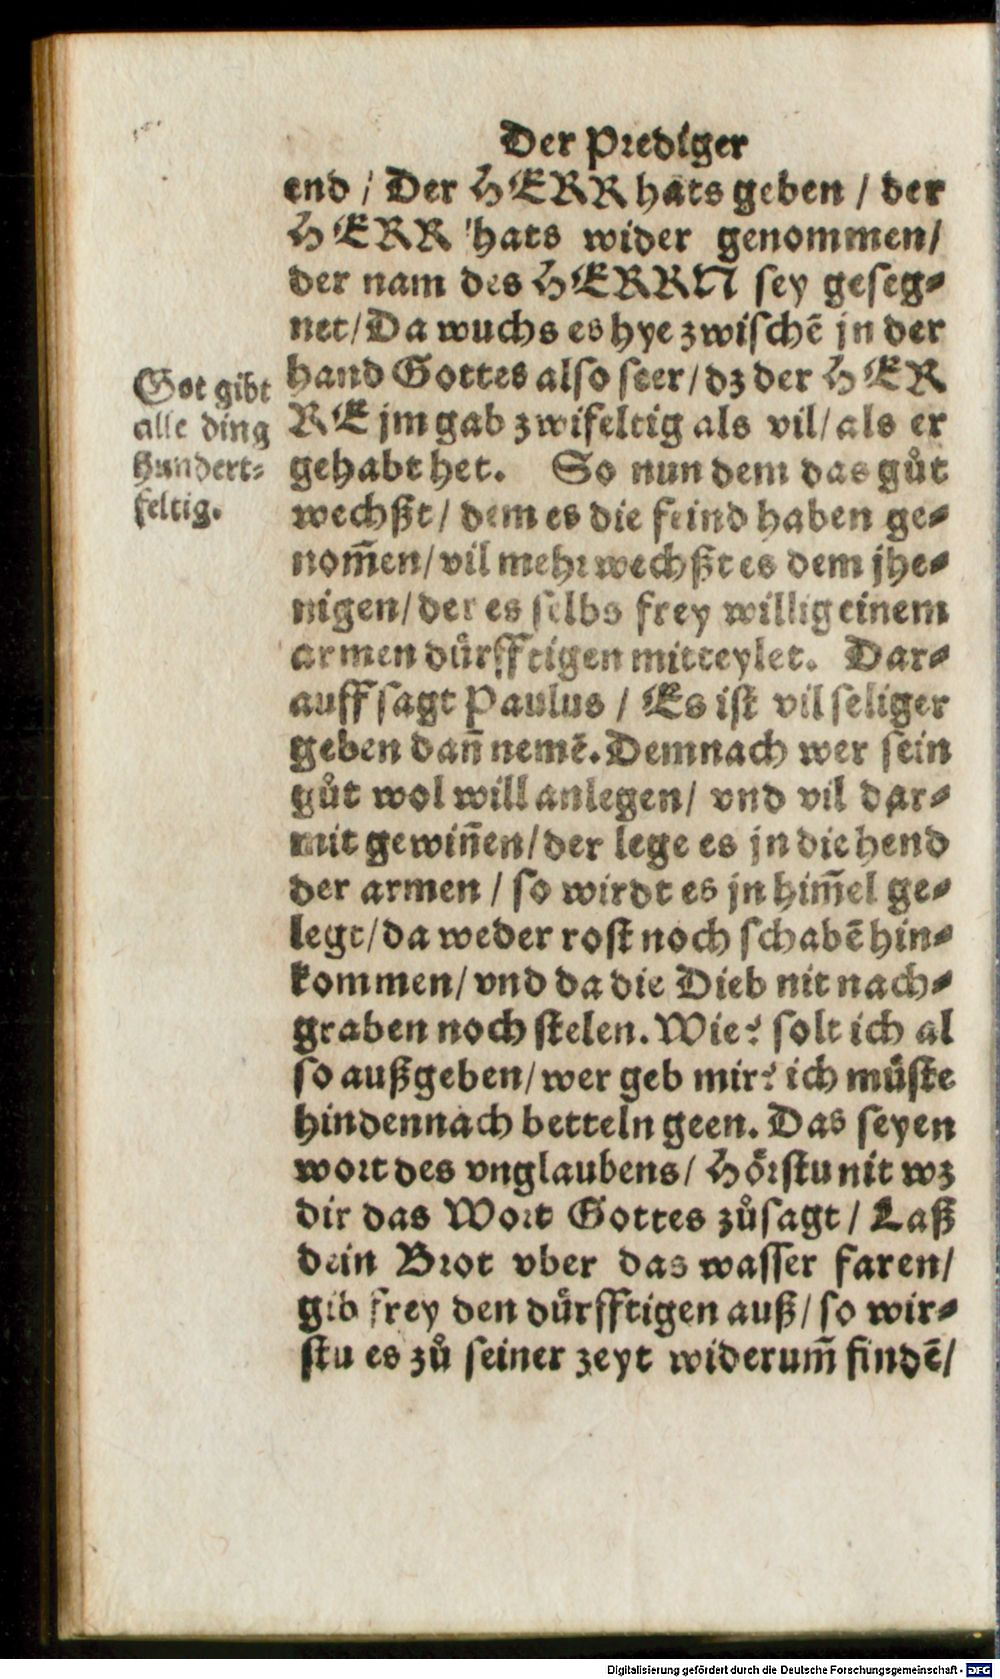 Der Prediger
end / Der HERR hats geben / der
HERR hats wider genommen/
der nam des HERRN sey geseg⸗
net/ Da wuchs es hye zwischē jn der
hand Gottes also seer/ dz der HER
RE jm gab zwifeltig als vil/ als er
gehabt het. So nun dem das gůt
wechßt/ dem es die feind haben ge⸗
nom̃en/ vil mehr wechßt es dem jhe⸗
nigen/ der es selbs frey willig einem
armen dürfftigen mitteylet. Dar⸗
auff sagt Paulus / Es ist vil seliger
geben dañ nemē. Demnach wer sein
gůt wol will anlegen/ vnd vil dar⸗
mit gewiñen/ der lege es jn die hend
der armen / so wirdt es jn him̃el ge⸗
legt/ da weder rost noch schabē hin⸗
kommen/ vnd da die Dieb nit nach⸗
graben noch stelen. Wie? solt ich al
so außgeben/ wer geb mir? ich müste
hindennach betteln geen. Das seyen
wort des vnglaubens/ Hörstu nit wz
dir das Wort Gottes zůsagt / Laß
dein Brot vber das wasser faren/
gib frey den dürfftigen auß/ so wir⸗
stu es zů seiner zeyt widerum̃ findē/
Got gibt
alle ding
hundert⸗
feltig.
Digitalisierung gefördert durch die Deutsche Forschungsgemeinschaft - DFG